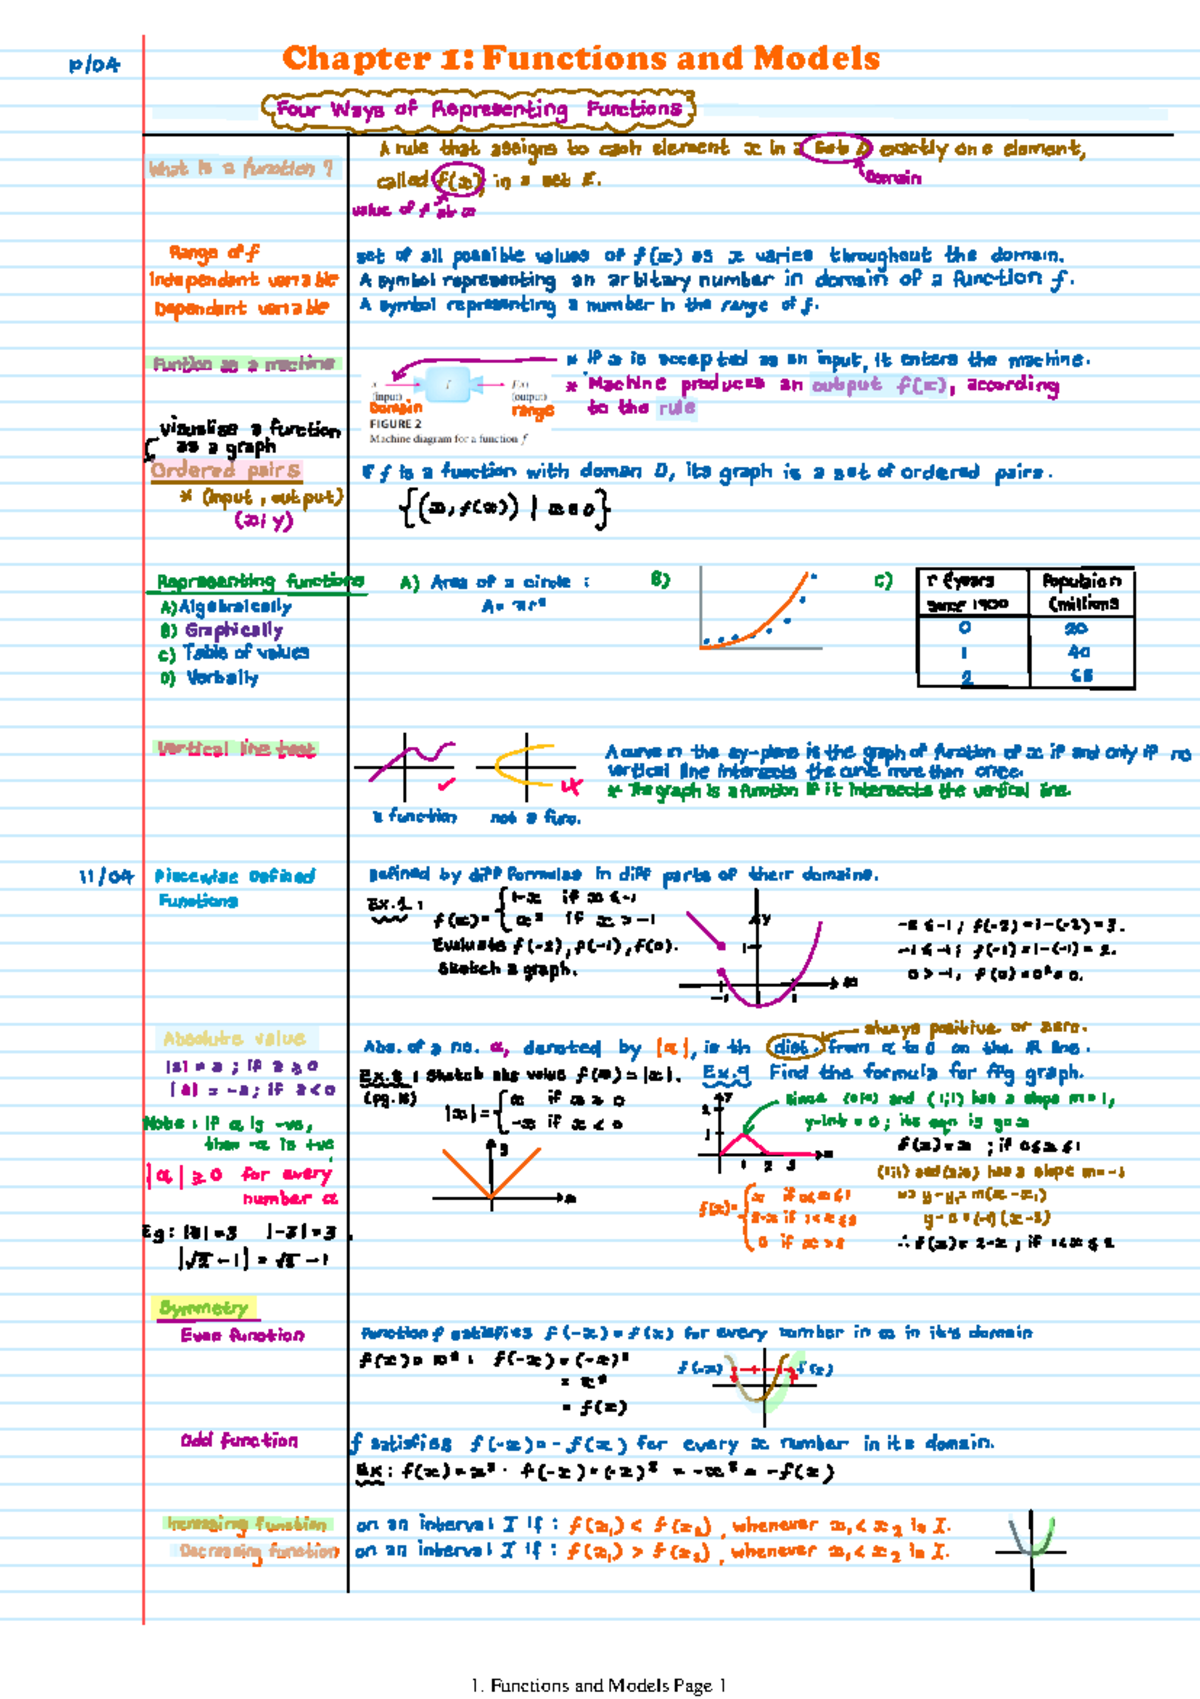 Chapter 1: Functions and Models
Four Ways of Representing Functions
What is a function?
A rule that assigns to each element x in a set D exactly one element,
called f(x), in a set E.
Domain
value of f at x
Range of f
set of all possible values of f(x) as x varies throughout the domain.
Independent variable
A symbol representing an arbitary number in domain of a function f.
Dependent variable
A symbol representing a number in the range of f.
Funtion as a machine
* If x is accepted as an input, it enters the machine.
* Machine produces an output f(x), according
to the rule
x
(input)
Domain
f
f(x)
(output)
range
FIGURE 2
Machine diagram for a function f
visualise a function
as a graph
Ordered pairs
* (input, output)
(x, y)
If f is a function with doman D, its graph is a set of ordered pairs.
{(x, f(x)) | x ∈ D}
Representing functions
A) Algebraically
B) Graphically
C) Table of values
D) Verbally
A) Area of a circle :
A = πr²
B)
C)
(years
since 1900
Population
(millions
0 20
1 40
2 65
Vertical line test
a function
not a func.
A curve in the xy-plane is the graph of function of x if and only if no
vertical line intersects the curve more than once.
* The graph is a function if it intersects the vertical line.
11/04
Piecewise Defined
Functions
Defined by diff formulas in diff parts of their domains.
Ex.1:
f(x) = { 1-x if x ≤ -1
x² if x > -1
Evaluate f(-2), f(-1), f(0).
Sketch a graph.
y
1
-1
1
x
-2 ≤ -1, f(-2) = 1-(-2) = 3.
-1 ≤ -1; f(-1) = 1-(-1) = 2.
0 > -1, f(0) = 0² = 0.
Absolute value
|a| = a ; if a ≥ 0
|a| = -a ; if a < 0
Note: if a is -ve,
then -a is +ve
|a| ≥ 0 for every
number a
Eg: |3| = 3 |-3| = 3
|√2 - 1| = √2 - 1
always positive or zero.
Abs. of a no. a, denoted by |a|, is th dist. from a to 0 on the R line.
Ex.8: Sketch abs value f(x) = |x|.
(pg.18)
|x| = { x if x ≥ 0
-x if x < 0
y
x
Ex.9 Find the formula for ffg graph.
y
2
1
1 2 3
x
since (0,0) and (1,1) has a slope m = 1,
y-int = 0 ; its eqn is y = x
f(x) = x ; if 0 ≤ x ≤ 1
(1,1) and (2,0) has a slope m = -1
=> y - y₁ = m(x - x₁)
y - 0 = (-1)(x - 2)
∴ f(x) = 2-x ; if 1 < x ≤ 2
f(x) = { x if 0 ≤ x ≤ 1
2-x if 1 < x ≤ 2
0 if x > 2
Symmetry
Even function
Function f satisfies f(-x) = f(x) for every number in x in it's domain
f(x) = x² : f(-x) = (-x)²
= x²
= f(x)
f(-x)
f(x)
Odd function
f satisfies f(-x) = -f(x) for every x number in its domain.
Ex: f(x) = x³ . f(-x) = (-x)³ = -x³ = -f(x)
Increasing function
on an interval I if : f(x₁) < f(x₂), whenever x₁ < x₂ in I.
Decreasing function
on an interval I if : f(x₁) > f(x₂), whenever x₁ < x₂ in I.
1. Functions and Models Page 1